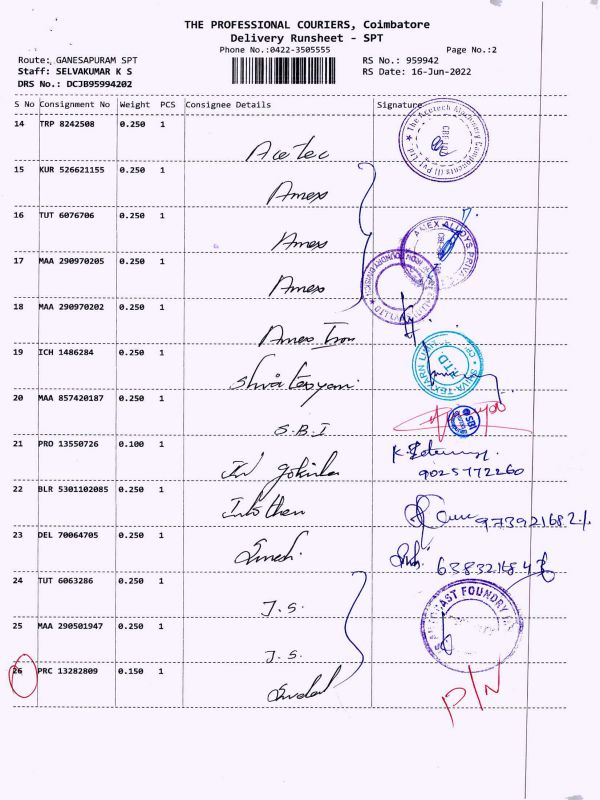 THE PROFESSIONAL COURIERS, Coimbatore
Delivery Runsheet - SPT
Phone No.:0422-3505555
Page No.:2
Route: GANESAPURAM SPT
RS No.: 959942
Staff: SELVAKUMAR K S
RS Date: 16-Jun-2022
DRS No.: DCJB95994202
S No Consignment No Weight PCS Consignee Details Signature
14 TRP 8242508 0.250 1
Acetec
The Acetech Machinery Components (I) Pvt Ltd
15 KUR 526621155 0.250 1
Amex
16 TUT 6076706 0.250 1
Amex
AMEX ALLOYS PRIVA
17 MAA 290970205 0.250 1
Amex
18 MAA 290970202 0.250 1
Amex Iron
19 ICH 1486284 0.250 1
Shiva texyarn
SHIVA TEXYARN LTD
20 MAA 857420187 0.250 1
S.B.I
SBI
21 PRO 13550726 0.100 1
9025772260
22 BLR 5301102085 0.250 1
23 DEL 70064705 0.250 1
24 TUT 6063286 0.250 1
J.S.
CAST FOUNDRY
25 MAA 290501947 0.250 1
J.S.
26 PRC 13282809 0.150 1
P/N